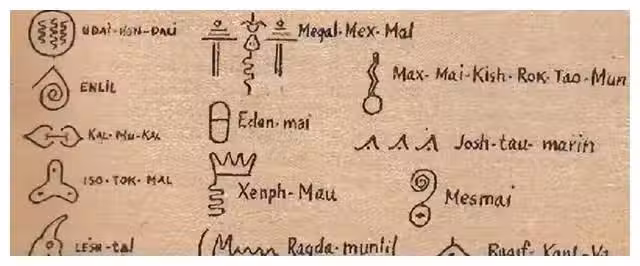 UDAI-HON-DALI
ENLIL
KAL-MU-KAL
ISO-TOK-MAL
LESH-tal
Megal-Mex-Mal
Edan-mai
Xenph-Mau
Ragda-muntil
Max-Mai-Kish-Rok-Tao-Mun
Josh-tau-marin
Mesmai